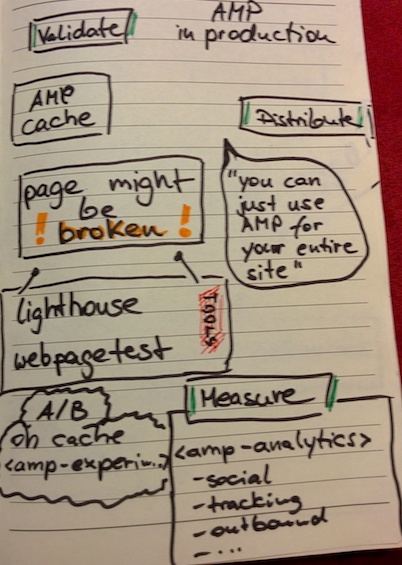 AMP
in production
Validate
AMP
cache
Distribute!
page might
be
! broken !
"you can
just use
AMP for
your entire
site"
lighthouse
webpagetest
TOOLS
A/B
on cache
<amp-experim...>
Measure
<amp-analytics>
-social
-tracking
-outbound
-...